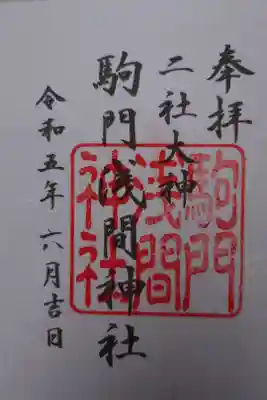 奉拝
二社大神
駒門浅間神社
令和五年六月吉日
駒門
浅間
神社